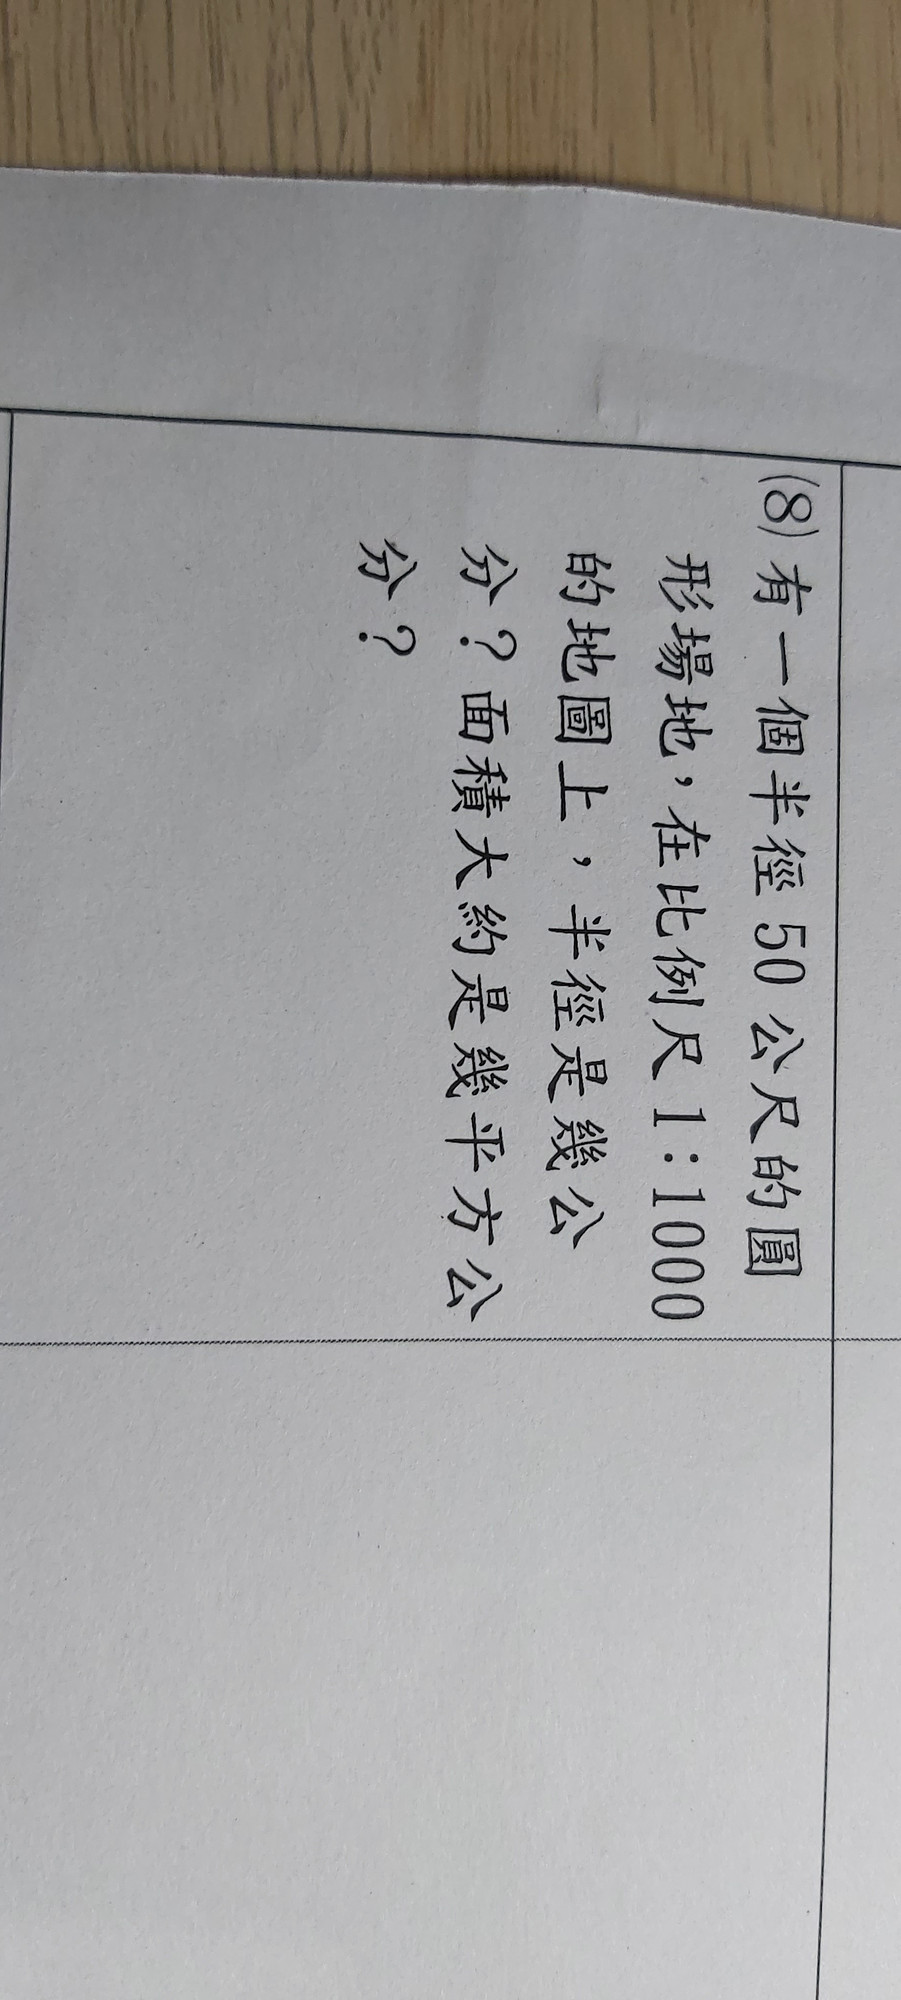 (8)有一個半徑50公尺的圓
形場地，在比例尺1:1000
的地圖上，半徑是幾公
分？面積大約是幾平方公
分？